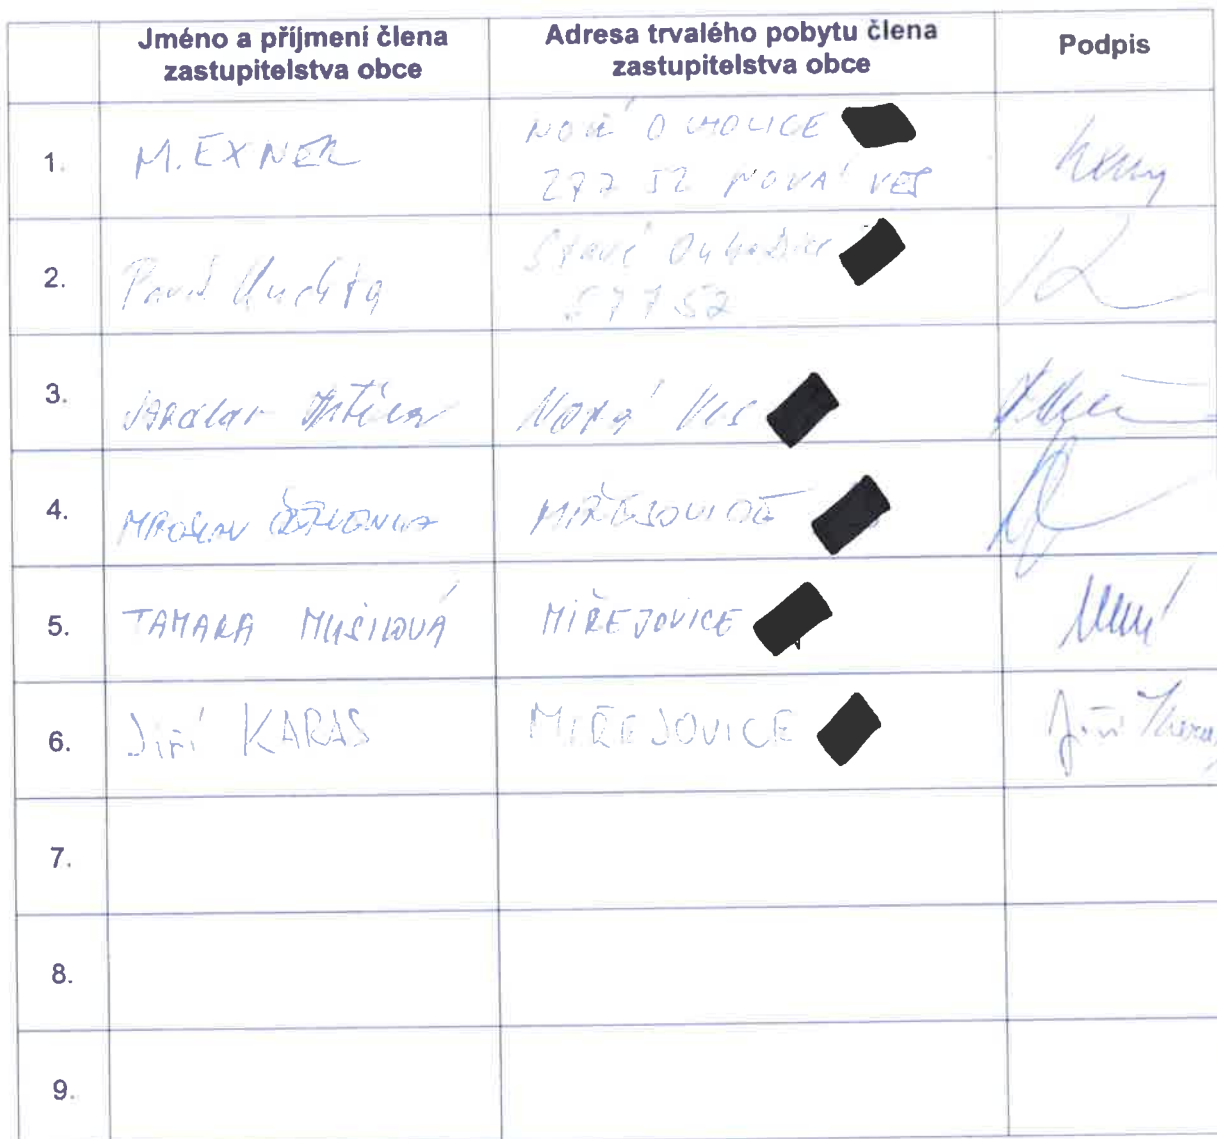 Jméno a příjmení člena
zastupitelstva obce
Adresa trvalého pobytu člena
zastupitelstva obce
Podpis
1.
M. EXNER
NOVÉ OUHOLICE
277 52 NOVÁ VES
2.
Pavel Kuchta
Staré Ouholice
277 52
3.
Jaroslav
Nová Ves
4.
MIROSLAV
MIŘEJOVICE
5.
TAMARA MUSILOVÁ
MIŘEJOVICE
6.
Jiří KARAS
MIŘEJOVICE
Jiří Karas
7.
8.
9.